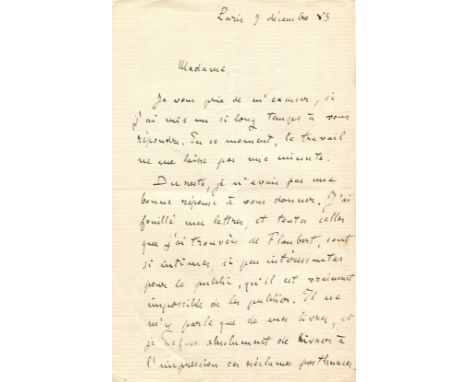 Paris 9 décembre 83
Madame,
Je vous prie de m'excuser, si
j'ai mis un si long temps à vous
répondre. En ce moment, le travail
ne me laisse pas une minute.
Du reste, je n'avais pas une
bonne réponse à vous donner. J'ai
fouillé mes lettres, et toutes celles
que j'ai trouvées de Flaubert, sont
si intimes, si peu intéressantes
pour le public, qu'il est vraiment
impossible de les publier. Il ne
m'y parle que de mes livres, et
je refuse absolument de livrer à
l'impression ces réclames posthumes.